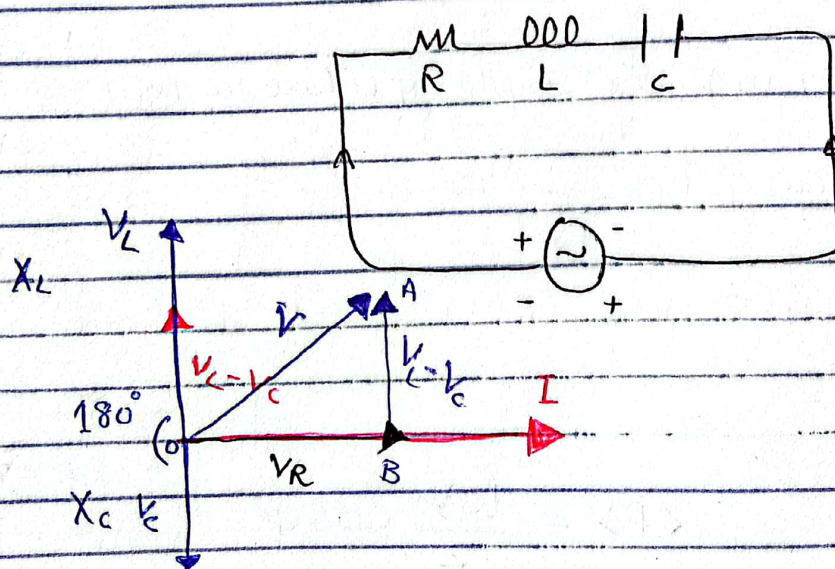 R L C
+ -
~
- +
V_L
X_L
A
V
V_L - V_C
V_L - V_C
I
180°
O
V_R
B
X_C V_C